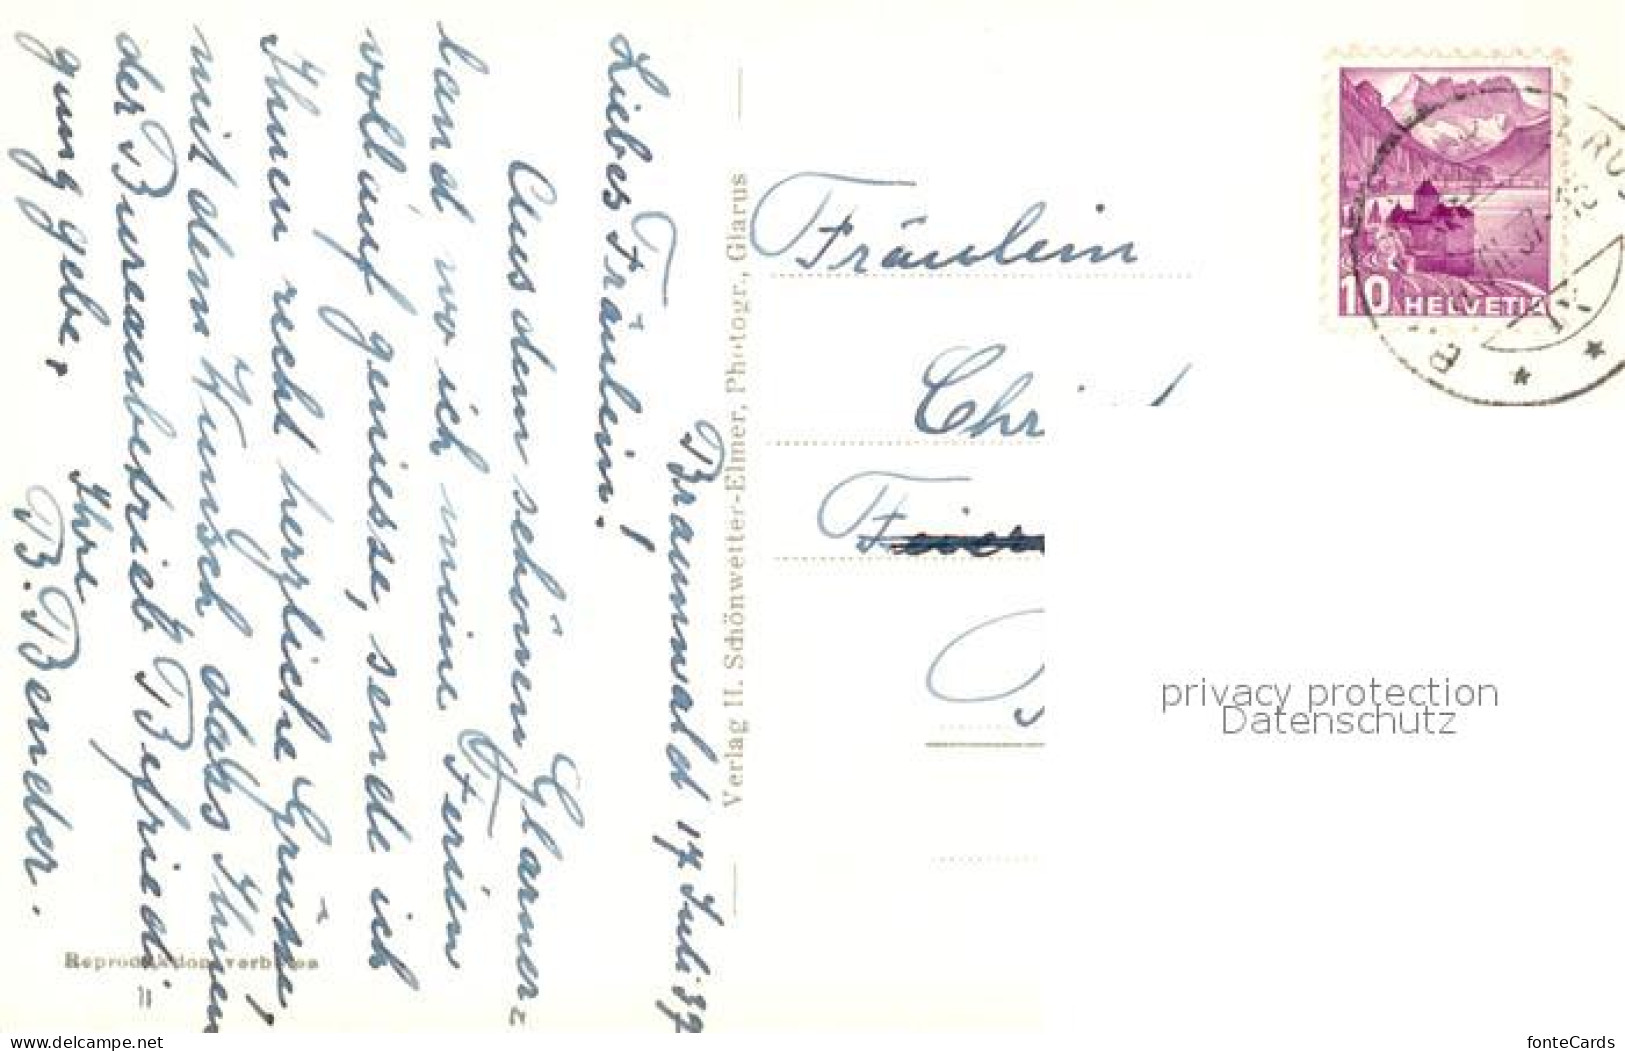 Braunwald 17 Juli 37
Liebes Fräulein!
Aus dem schönen Glarner-
land wo ich meine Ferien
vollauf geniesse, sende ich
Ihnen recht herzliche Grüsse!
mit dem Wunsch dass Ihnen
der Bureaubetrieb Befriedi-
gung gebe.
Ihre
B. Bender.
Verlag H. Schönwetter-Elmer, Photogr., Glarus
Reproduktion verboten
Fräulein
Chr
10 HELVETIA
privacy protection
Datenschutz
www.delcampe.net
fonteCards